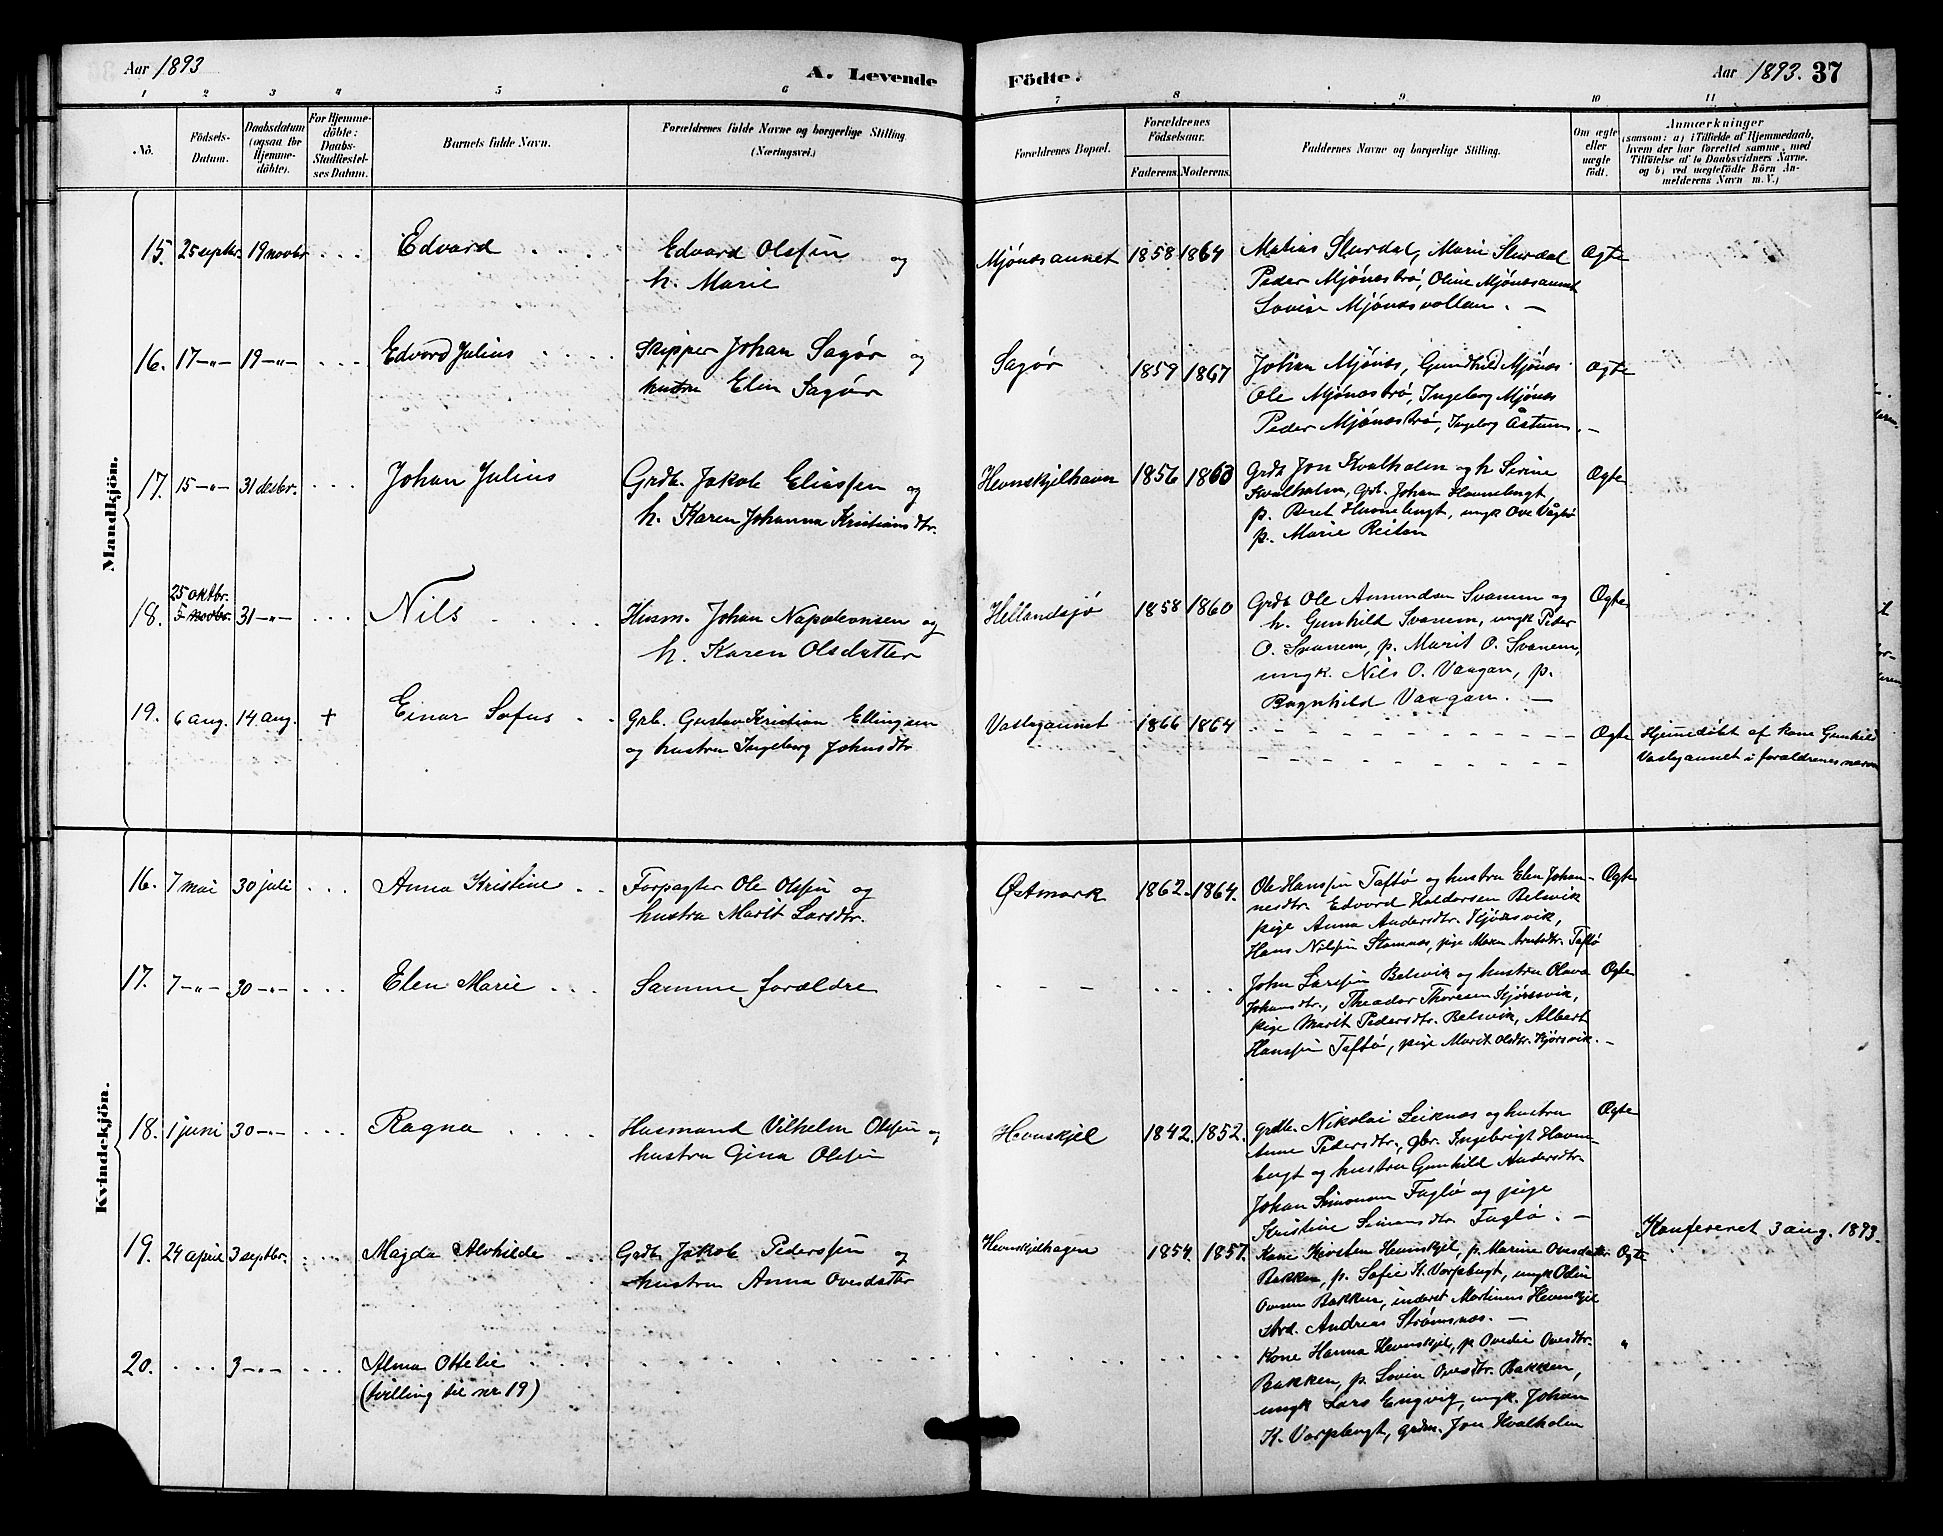 Aar 1893
A. Levende
Födte.
Aar 1893. 37
1 2 3 4 5 6 7 8 9 10 11
No.
Födsels-
Datum.
Daabsdatum
(ogsaa for
Hjemme-
döbte).
For Hjemme-
döbte:
Daabs-
Stadfæstel-
ses Datum.
Barnets fulde Navn.
Forældrenes fulde Navne og borgerlige Stilling
(Næringsvei.)
Forældrenes Bopæl.
Forældrenes
Födselsaar.
Faderens. Moderens.
Faddernes Navne og borgerlige Stilling.
Om ægte
eller
uægte
födt.
Anmærkninger
(saasom: a) i Tilfælde af Hjemmedaab,
hvem der har forrettet samme, med
Tilföielse af to Daabsvidners Navne.
og b) ved uægtefödte Börn An-
melderens Navn m. V.)
Mandkjön.
15. 25 septbr. 19 novbr. . . . Edvard . . .
Edvard Olssen og
h. Marie
Mjónesaunet 1858 1864
Matias Slurdal, Marie Slurdal
Peder Mjónesbrø, Oline Mjónesaunet
Lovise Mjónesvollan. —
Ogte
16. 17-„- 19-„- . . . Edvard Julius . . .
Skipper Johan Sagør og
hustru Elin Sagør
Sagør 1859 1867
Johan Mjónes, Gundhild Mjónes
Ole Mjónesbrø, Ingeborg Mjónes
Peder Mjónesbrø, Ingeborg Åstrum. —
Ogte
17. 15-„- 31 desbr. . . . Johan Julius
Grdb. Jakob Eliassen og
h. Karen Johanna Kristiansdtr.
Hevnskjelhavn 1856 1863
Grdb Jon Kvalholm og h Serine
Kvalholm, grb. Johan Havnebugt,
p. Beret Havnebugt, ungk Ove Vågbø
p. Marie Reitan
Ogte
18. 25 oktbr.
5 novbr. 31-„- . . . Nils . . . .
Husm. Johan Napoleonsen og
h. Karen Olsdatter
Hellandsjø 1858 1860
Grdb Ole Amundsen Svanem og
h. Gunhild Svanem, ungk Peder
O. Svanem, p. Marit O. Svanem,
ungk. Nils O. Vaagan, p.
Ragnhild Vaagan. —
Ogte
19. 6 aug. 14. aug. + Einar Sofus . .
Grb. Gustav Kristian Ellingsen
og hustru Ingeborg Johnsdtr
Vaslagaunet 1866 1864
Ogte
Hjemmedøbt af kone Gunhild
Vaslagaunet i forældrenes navn
Kvindekjön.
16. 7 mai 30 juli . . . Anna Kristine . .
Forpagter Ole Olssen og
hustru Marit Larsdtr.
Østmark 1862. 1864.
Ole Hanssen Taftø og hustru Elen Johan-
nesdtr. Edvard Haldorsen Belsvik
pige Anna Andersdtr. Kjørsvik,
Hans Nilssen Stamnes, pige Maren Arntsdtr. Taftø
Ogte
17. 7-„- 30-„- . . . Elen Marie . . .
Samme forældre
John Larssen Belsvik og hustru Olava
Johansdtr., Theodor Thoresen Kjørsvik,
pige Marit Pedersdtr. Belsvik, Albert
Hanssen Taftø, pige Marit Olsdtr. Kjørsvik. —
Ogte
18. 1 juni 30-„- . . . Ragna . . . .
Husmand Vilhelm Olssen og
hustru Gina Olssen
Hevnskjel 1842. 1852.
Grdbr. Nikolai Leiknes og hustru
Anne Pedersdtr., gbr. Ingebrigt Havne-
bugt og hustru Gunhild Andersdtr.
Johan Simonsen Fuglø og pige
Kristine Simonsdtr. Fuglø. —
Ogte
19. 24 april 3 septbr. . . . Magda Alvhilde . .
Grdb Jakob Pederssen og
hustru Anna Ovesdatter
Hevnskjelhagen 1854. 1857.
Kone Karsten Hevnskjel, p. Marine Ovesdatter
Bakken, p. Sofie K. Vorpbugt, ungk Odin
Ovesen Bakken, inderst Martinus Hevnskjel
strd. Andreas Strømsnes. —
Ogte
Konfereret 3 aug. 1893.
20. . . . 3-„- . . . Alma Ottelie . . .
(tvilling til nr 19)
Kone Hanna Hevnskjel, p Ovedie Ovesdtr.
Bakken, p. Lovise Ovesdtr. Bakken,
ungk Lars Engvig, ungk. Johan
K. Vorpbugt, grdm. Jon Kvalholm
„